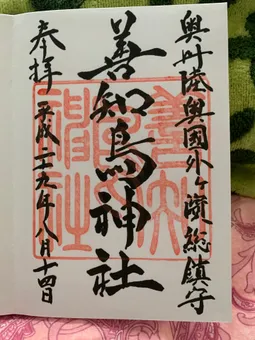 奥州陸奥國外ヶ濱総鎮守
善知鳥神社
奉拝 平成二十九年八月十四日
善知鳥神社